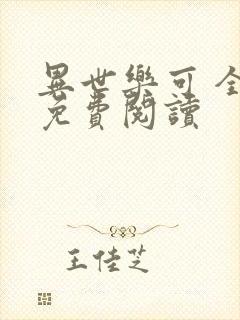 異世樂可 全
免費閱讀
王佳芝